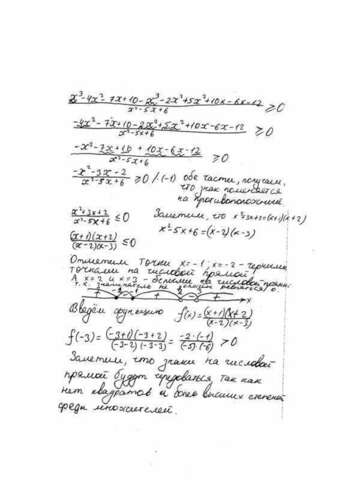 x³-4x²-7x+10-x³-2x²+5x²+10x-6x-12 / x²-5x+6 ≥0
-4x²-7x+10-2x²+5x²+10x-6x-12 / x²-5x+6 ≥0
-x²-7x+10+10x-6x-12 / x²-5x+6 ≥0
-x²-3x-2 / x²-5x+6 ≥0 /·(-1) обе части, получаем,
что знак поменяется
на противоположный.
x²+3x+2 / x²-5x+6 ≤0 Заметим, что x²+3x+2=(x+1)(x+2)
x²-5x+6=(x-2)(x-3)
(x+1)(x+2) / (x-2)(x-3) ≤0
Отметим точки x=-1; x=-2 - черными
точками на числовой прямой,
А x=2 и x=3 - белыми на числовой прямой
т.к. знаменатель не должен равняться 0.
+ - + - + x
Введём функцию f(x)=(x+1)(x+2) / (x-2)(x-3)
f(-3)=(-3+1)(-3+2) / (-3-2)(-3-3) = -2·(-1) / (-5)(-6) ≥0
Заметим, что знаки на числовой
прямой будут чередоваться, так как
нет квадратов и более высших степеней
среди множителей.